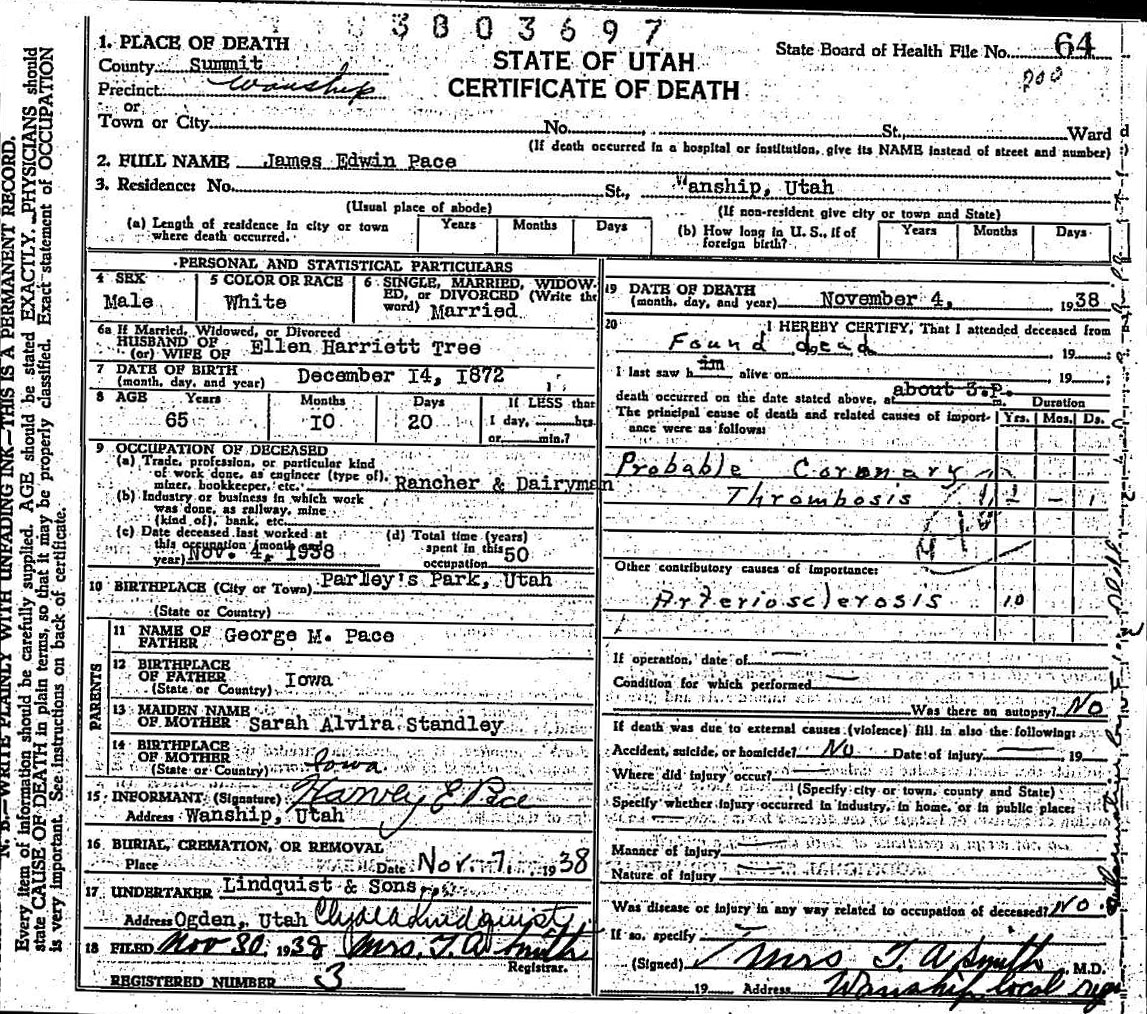 3803697
1. PLACE OF DEATH
County Summit
Precinct Wanship
or
Town or City
STATE OF UTAH
CERTIFICATE OF DEATH
State Board of Health File No. 64
200
No. St., Ward
(If death occurred in a hospital or institution, give its NAME instead of street and number)
2. FULL NAME James Edwin Pace
3. Residence: No. St., Wanship, Utah
(Usual place of abode) (If non-resident give city or town and State)
(a) Length of residence in city or town where death occurred. Years Months Days
(b) How long in U. S., if of foreign birth? Years Months Days
PERSONAL AND STATISTICAL PARTICULARS
4 SEX
Male
5 COLOR OR RACE
White
6 SINGLE, MARRIED, WIDOW-
ED, or DIVORCED (Write the
word) Married
6a If Married, Widowed, or Divorced
HUSBAND OF
(or) WIFE OF Ellen Harriett Tree
7 DATE OF BIRTH
(month, day, and year) December 14, 1872
8 AGE Years Months Days If LESS than
65 10 20 1 day, hrs
or min.?
9 OCCUPATION OF DECEASED
(a) Trade, profession, or particular kind
of work done, as engineer (type of),
miner, bookkeeper, etc. Rancher & Dairyman
(b) Industry or business in which work
was done, as railway, mine
(kind of), bank, etc.
(c) Date deceased last worked at
this occupation (month and
year) Nov. 4, 1938
(d) Total time (years)
spent in this
occupation 50
10 BIRTHPLACE (City or Town) Parley's Park, Utah
(State or Country)
PARENTS
11 NAME OF
FATHER George M. Pace
12 BIRTHPLACE
OF FATHER
(State or Country) Iowa
13 MAIDEN NAME
OF MOTHER Sarah Alvira Standley
14 BIRTHPLACE
OF MOTHER
(State or Country) Iowa
15 INFORMANT (Signature) Harvey E Pace
Address Wanship, Utah
16 BURIAL, CREMATION, OR REMOVAL
Place Date Nov. 7, 1938
17 UNDERTAKER Lindquist & Sons
Address Ogden, Utah Clyde Lindquist
18 FILED Nov 30, 1938 Mrs. T. A. Smith
Registrar.
REGISTERED NUMBER 3
19 DATE OF DEATH
(month, day, and year) November 4, 1938
20 I HEREBY CERTIFY, That I attended deceased from
Found dead , 19 ;
I last saw him alive on , 19 ;
death occurred on the date stated above, at about 3.p. m.
The principal cause of death and related causes of import-
ance were as follows:
Duration
Yrs. Mos. Ds.
Probable Coronary
Thrombosis
Other contributory causes of importance:
Arteriosclerosis 10
If operation, date of
Condition for which performed
Was there an autopsy? No
If death was due to external causes (violence) fill in also the following:
Accident, suicide, or homicide? No Date of injury 19
Where did injury occur?
(Specify city or town, county and State)
Specify whether injury occurred in industry, in home, or in public place:
Manner of injury
Nature of injury
Was disease or injury in any way related to occupation of deceased? No.
If so, specify
(Signed) Mrs T. A Smith M.D.
19 Address Wanship local
N. B.—WRITE PLAINLY WITH UNFADING INK—THIS IS A PERMANENT RECORD.
Every item of information should be carefully supplied. AGE should be stated EXACTLY. PHYSICIANS should
state CAUSE OF DEATH in plain terms, so that it may be properly classified. Exact statement of OCCUPATION
is very important. See instructions on back of certificate.